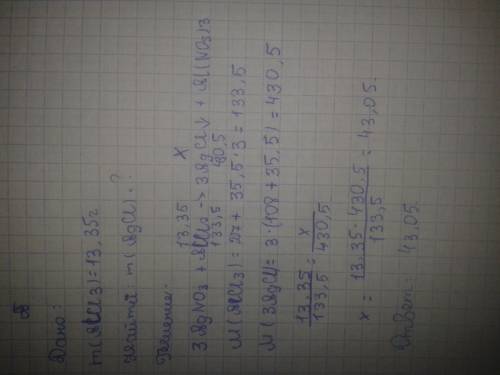 Дано:
m(AlCl3)=13,35г
Найти: m(AgCl)-?
Решение:
13,35 x
3AgNO3 + AlCl3 -> 3AgCl↓ + Al(NO3)3
133,5 430,5
M(AlCl3)=27+35,5·3=133,5
M(3AgCl)=3·(108+35,5)=430,5
13,35/133,5=x/430,5
x=13,35·430,5/133,5=43,05.
Ответ: 43,05.